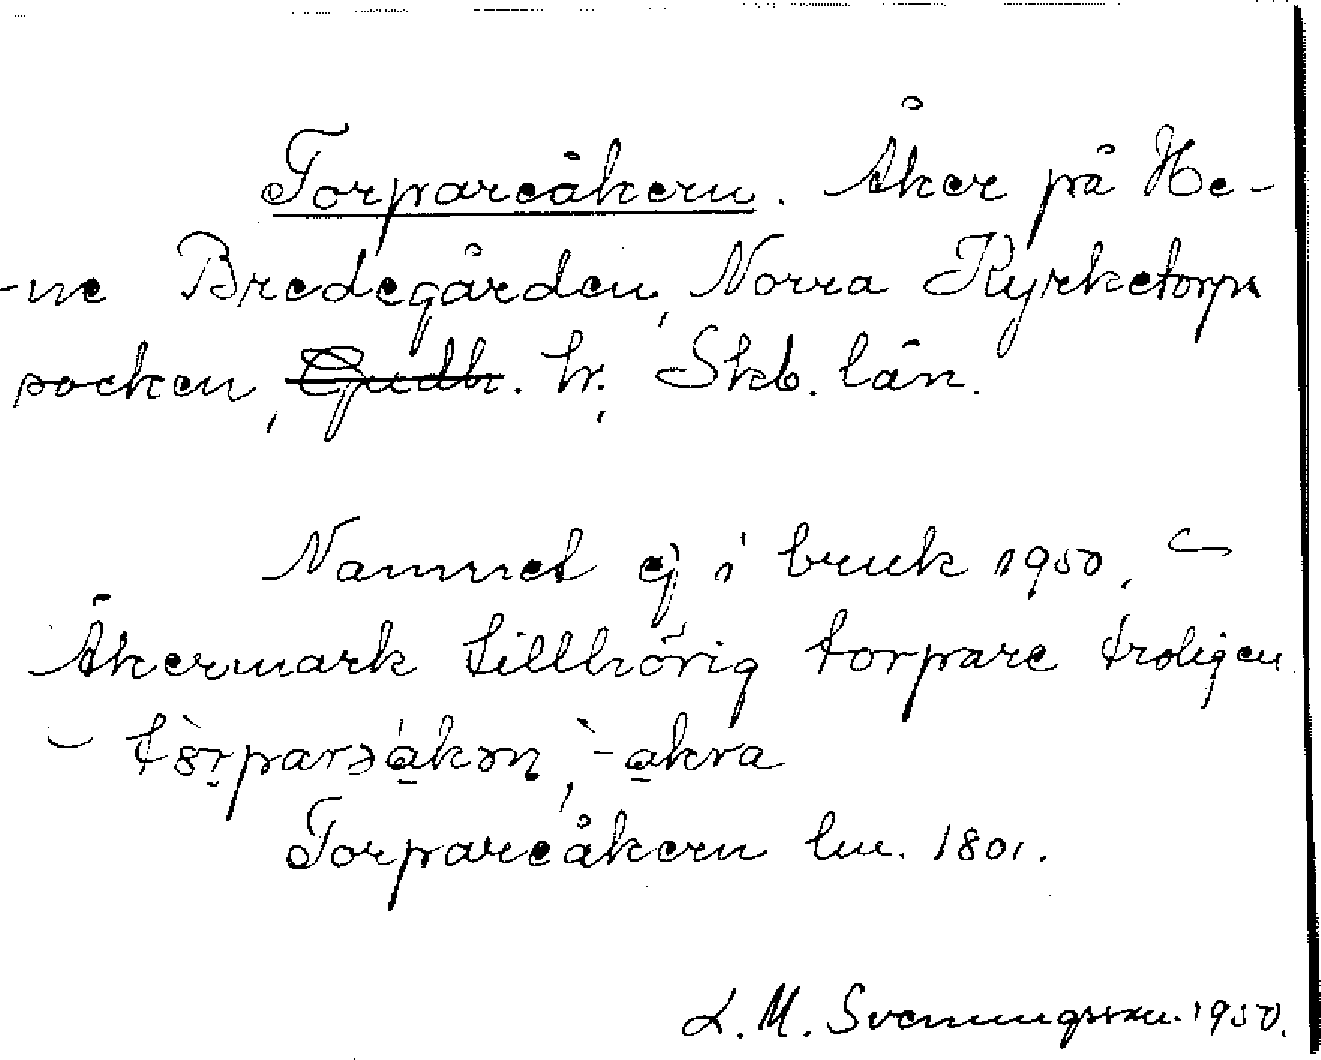 Torpareåkern. Åker på He-
-ne Bredegården, Norra Kyrketorps
socken, Gudh. hr, Skb. län.
Namnet ej i bruk 1950. –
Åkermark tillhörig torpare troligen
– tòrparəákən, -akra
Torpareåkern lm. 1801.
L. M. Svenungsson. 1950.